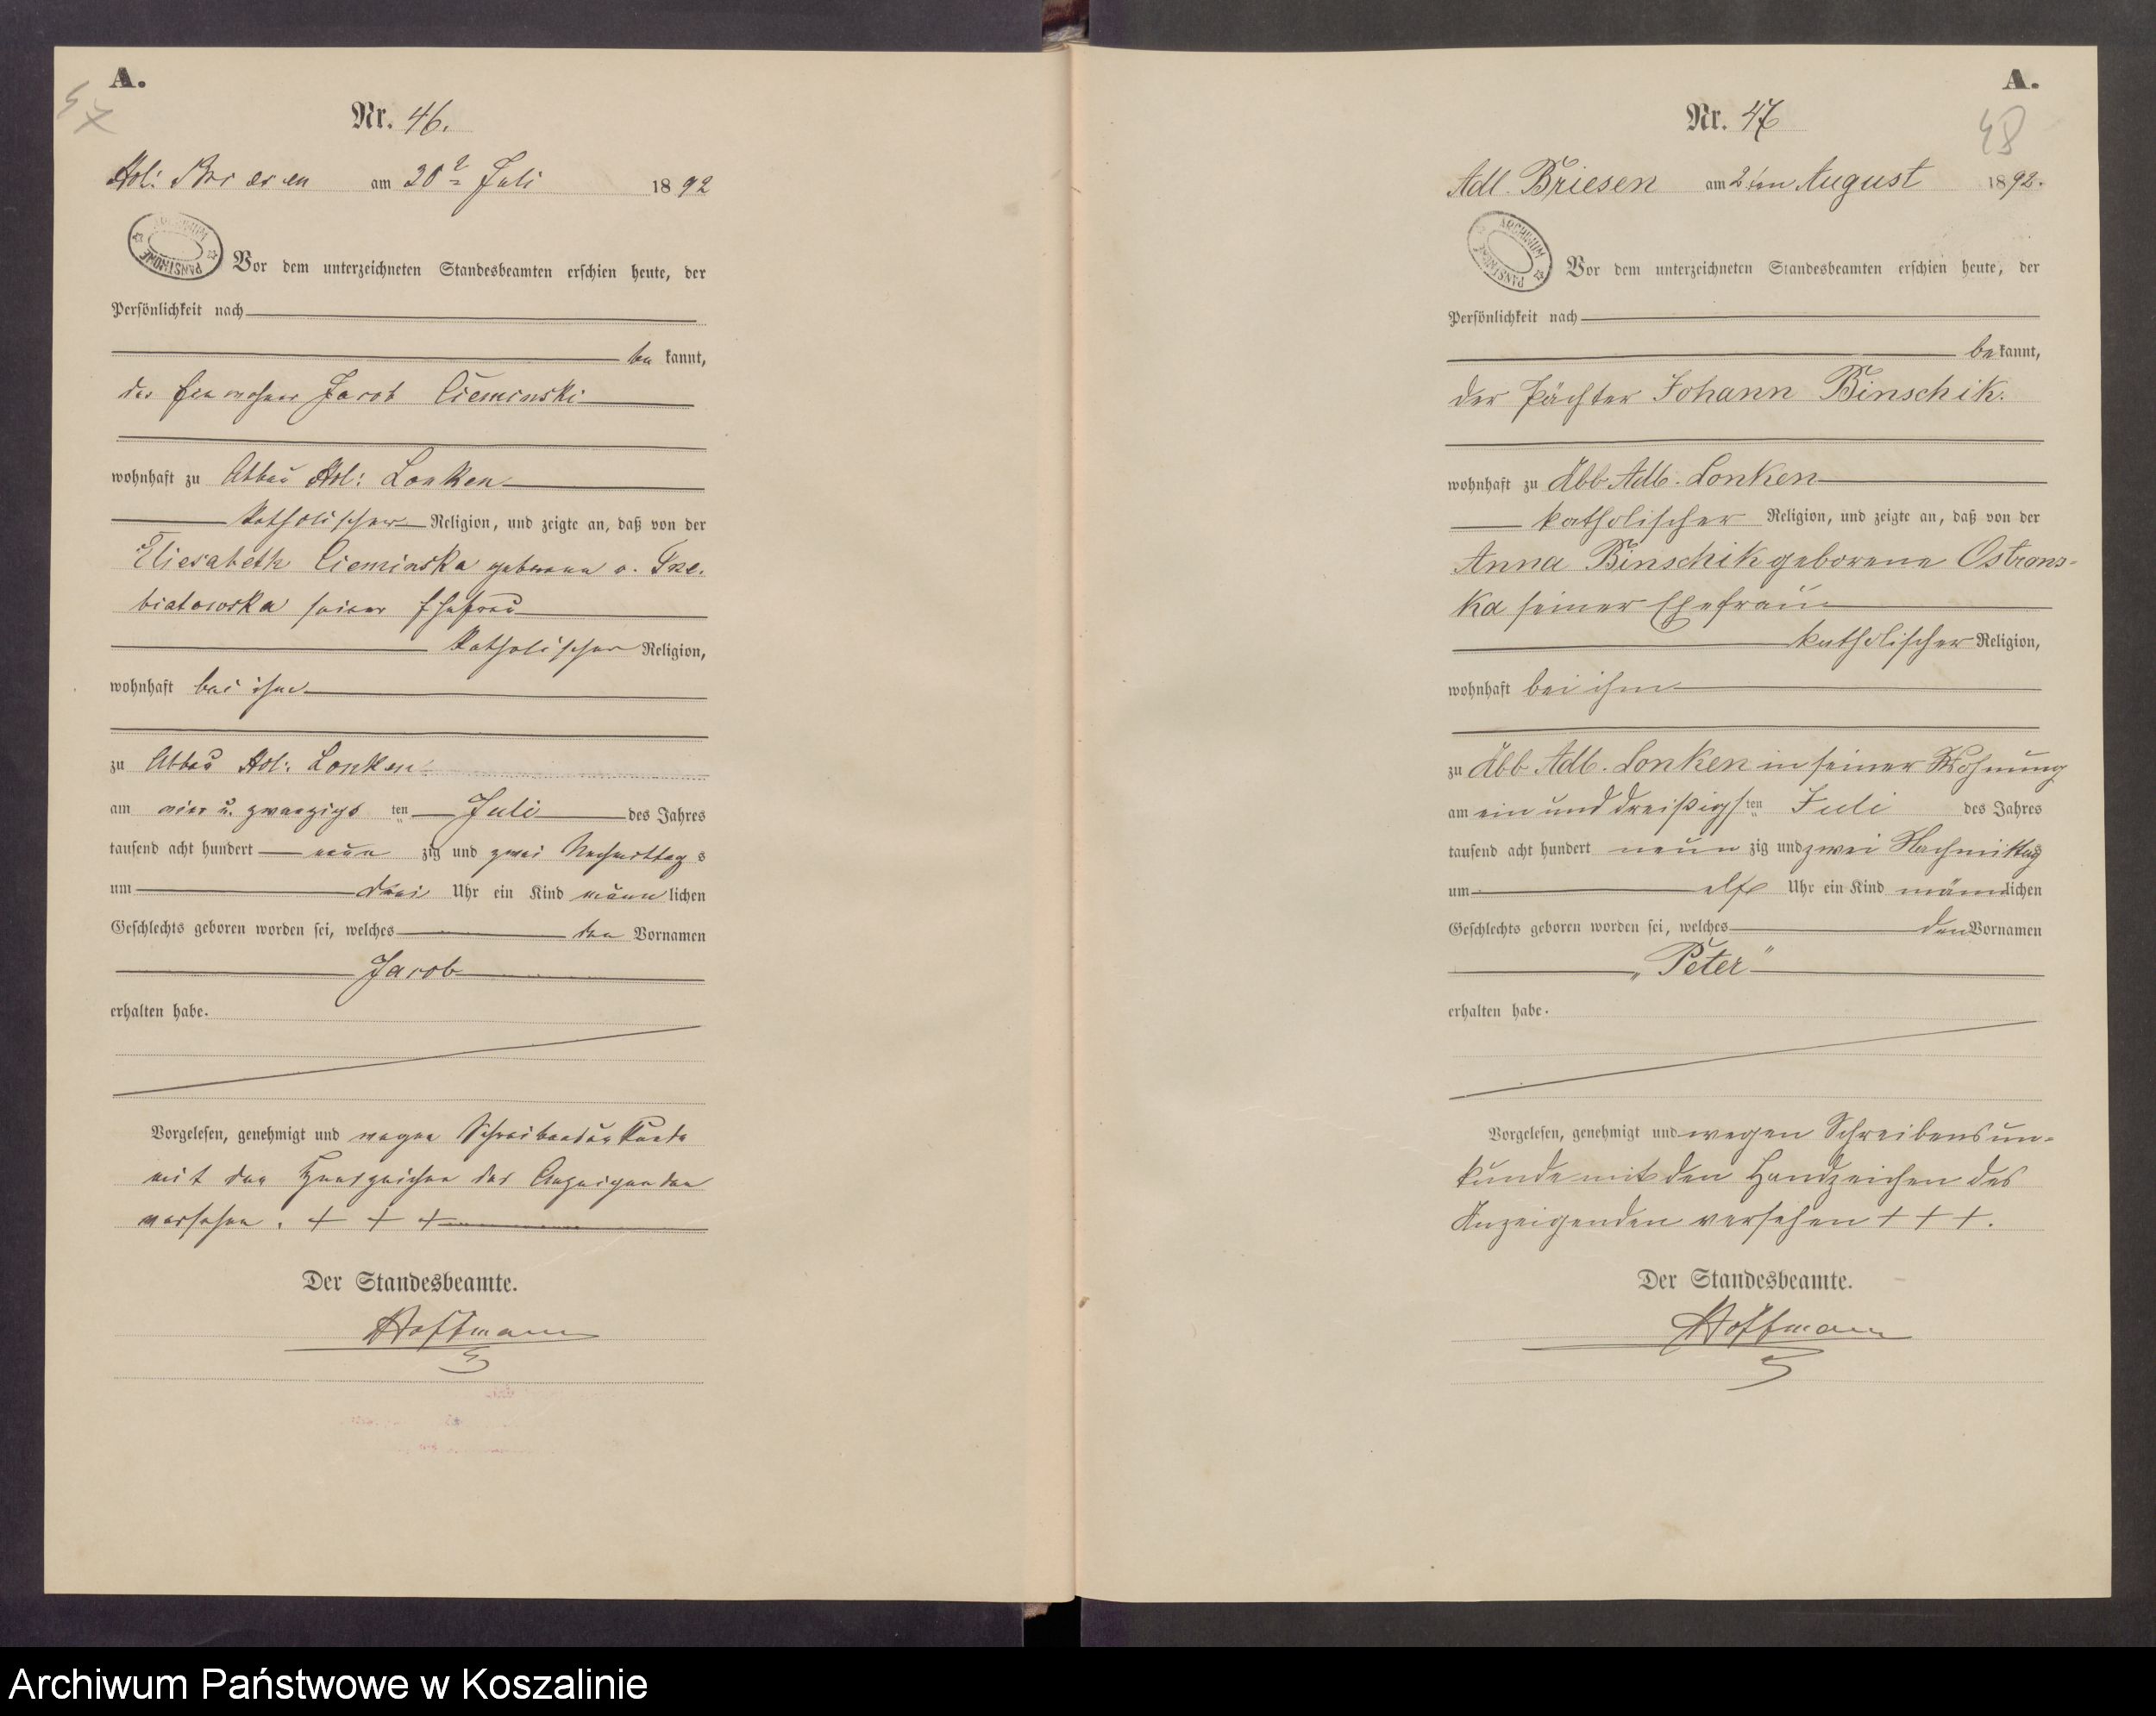 A.
47
Nr. 46.
Adl: Briesen am Juli 1892
ARCHIWUM PAŃSTWOWE
Vor dem unterzeichneten Standesbeamten erschien heute, der
Persönlichkeit nach
be kannt,
der Einwohner Jacob Cieminski
wohnhaft zu Abbau Adl: Lonken
katholischer Religion, und zeigte an, daß von der
Eliesabeth Cieminska geborene v. Trze-
biatowska seiner Ehefrau
katholischer Religion,
wohnhaft bei ihm
zu Abbau Adl: Lonken
am vier u. zwanzigs ten Juli des Jahres
tausend acht hundert neun zig und zwei Nachmittag s
um drei Uhr ein Kind männ lichen
Geschlechts geboren worden sei, welches den Vornamen
Jacob
erhalten habe.
Vorgelesen, genehmigt und wegen Schreibensunkunde
mit den Handzeichen des Anzeigenden
versehen. + + +
Der Standesbeamte.
Hoffmann
A.
48
Nr. 47
Adl. Briesen am 2 ten August 1892.
ARCHIWUM PAŃSTWOWE
Vor dem unterzeichneten Standesbeamten erschien heute, der
Persönlichkeit nach
be kannt,
der Pächter Johann Binschik.
wohnhaft zu Abb. Adl. Lonken
katholischer Religion, und zeigte an, daß von der
Anna Binschik geborene Ostrows-
ka seiner Ehefrau
katholischer Religion,
wohnhaft bei ihm
zu Abb. Adl. Lonken in seiner Wohnung
am ein und dreißigs ten Juli des Jahres
tausend acht hundert neun zig und zwei Nachmittag s
um elf Uhr ein Kind männ lichen
Geschlechts geboren worden sei, welches den Vornamen
„Peter"
erhalten habe.
Vorgelesen, genehmigt und wegen Schreibensun-
kunde mit den Handzeichen des
Anzeigenden versehen + + +.
Der Standesbeamte.
Hoffmann
Archiwum Państwowe w Koszalinie